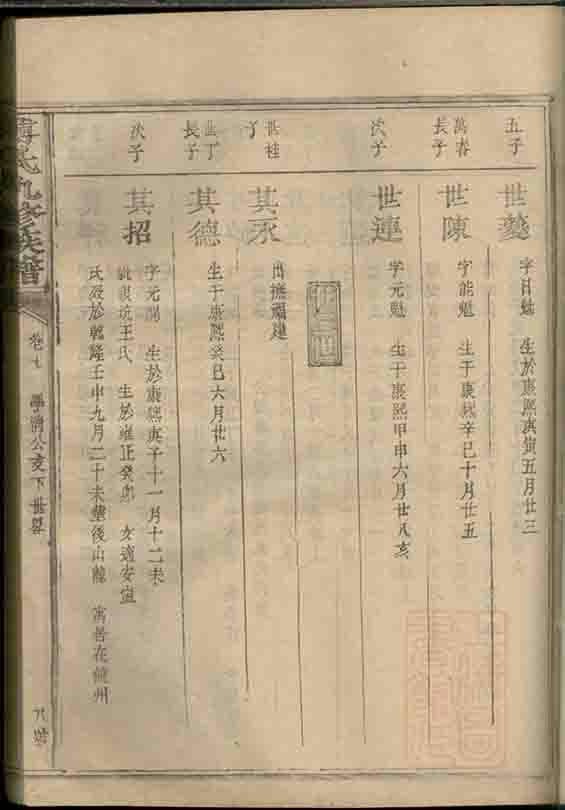 五子
世
字日魁 生於康熙庚寅五月廿三
萬春長子
世陳
字能魁 生于康熙辛巳十月廿五
次子
世連
字元魁 生于康熙甲申六月廿八亥
世桂子
其永
出撫福建
世丁長子
其德
生于康熙癸巳六月廿六
次子
其招
字元 生於康熙庚子十一月十二未
王氏 生於雍正癸卯 女適安宜
氏歿於乾隆壬申九月二十未塟後山 寓居在 州
氏九修族譜
卷七 學 公支下世畧